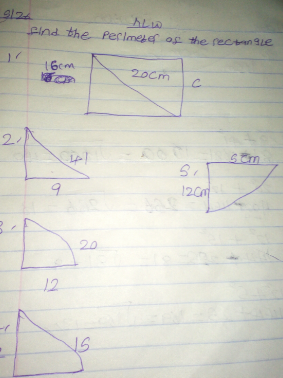 H/W
find the Perimeter of the rectangle
1.
16cm
20cm
C
2.
41
9
5.
5cm
12cm
20
12
15